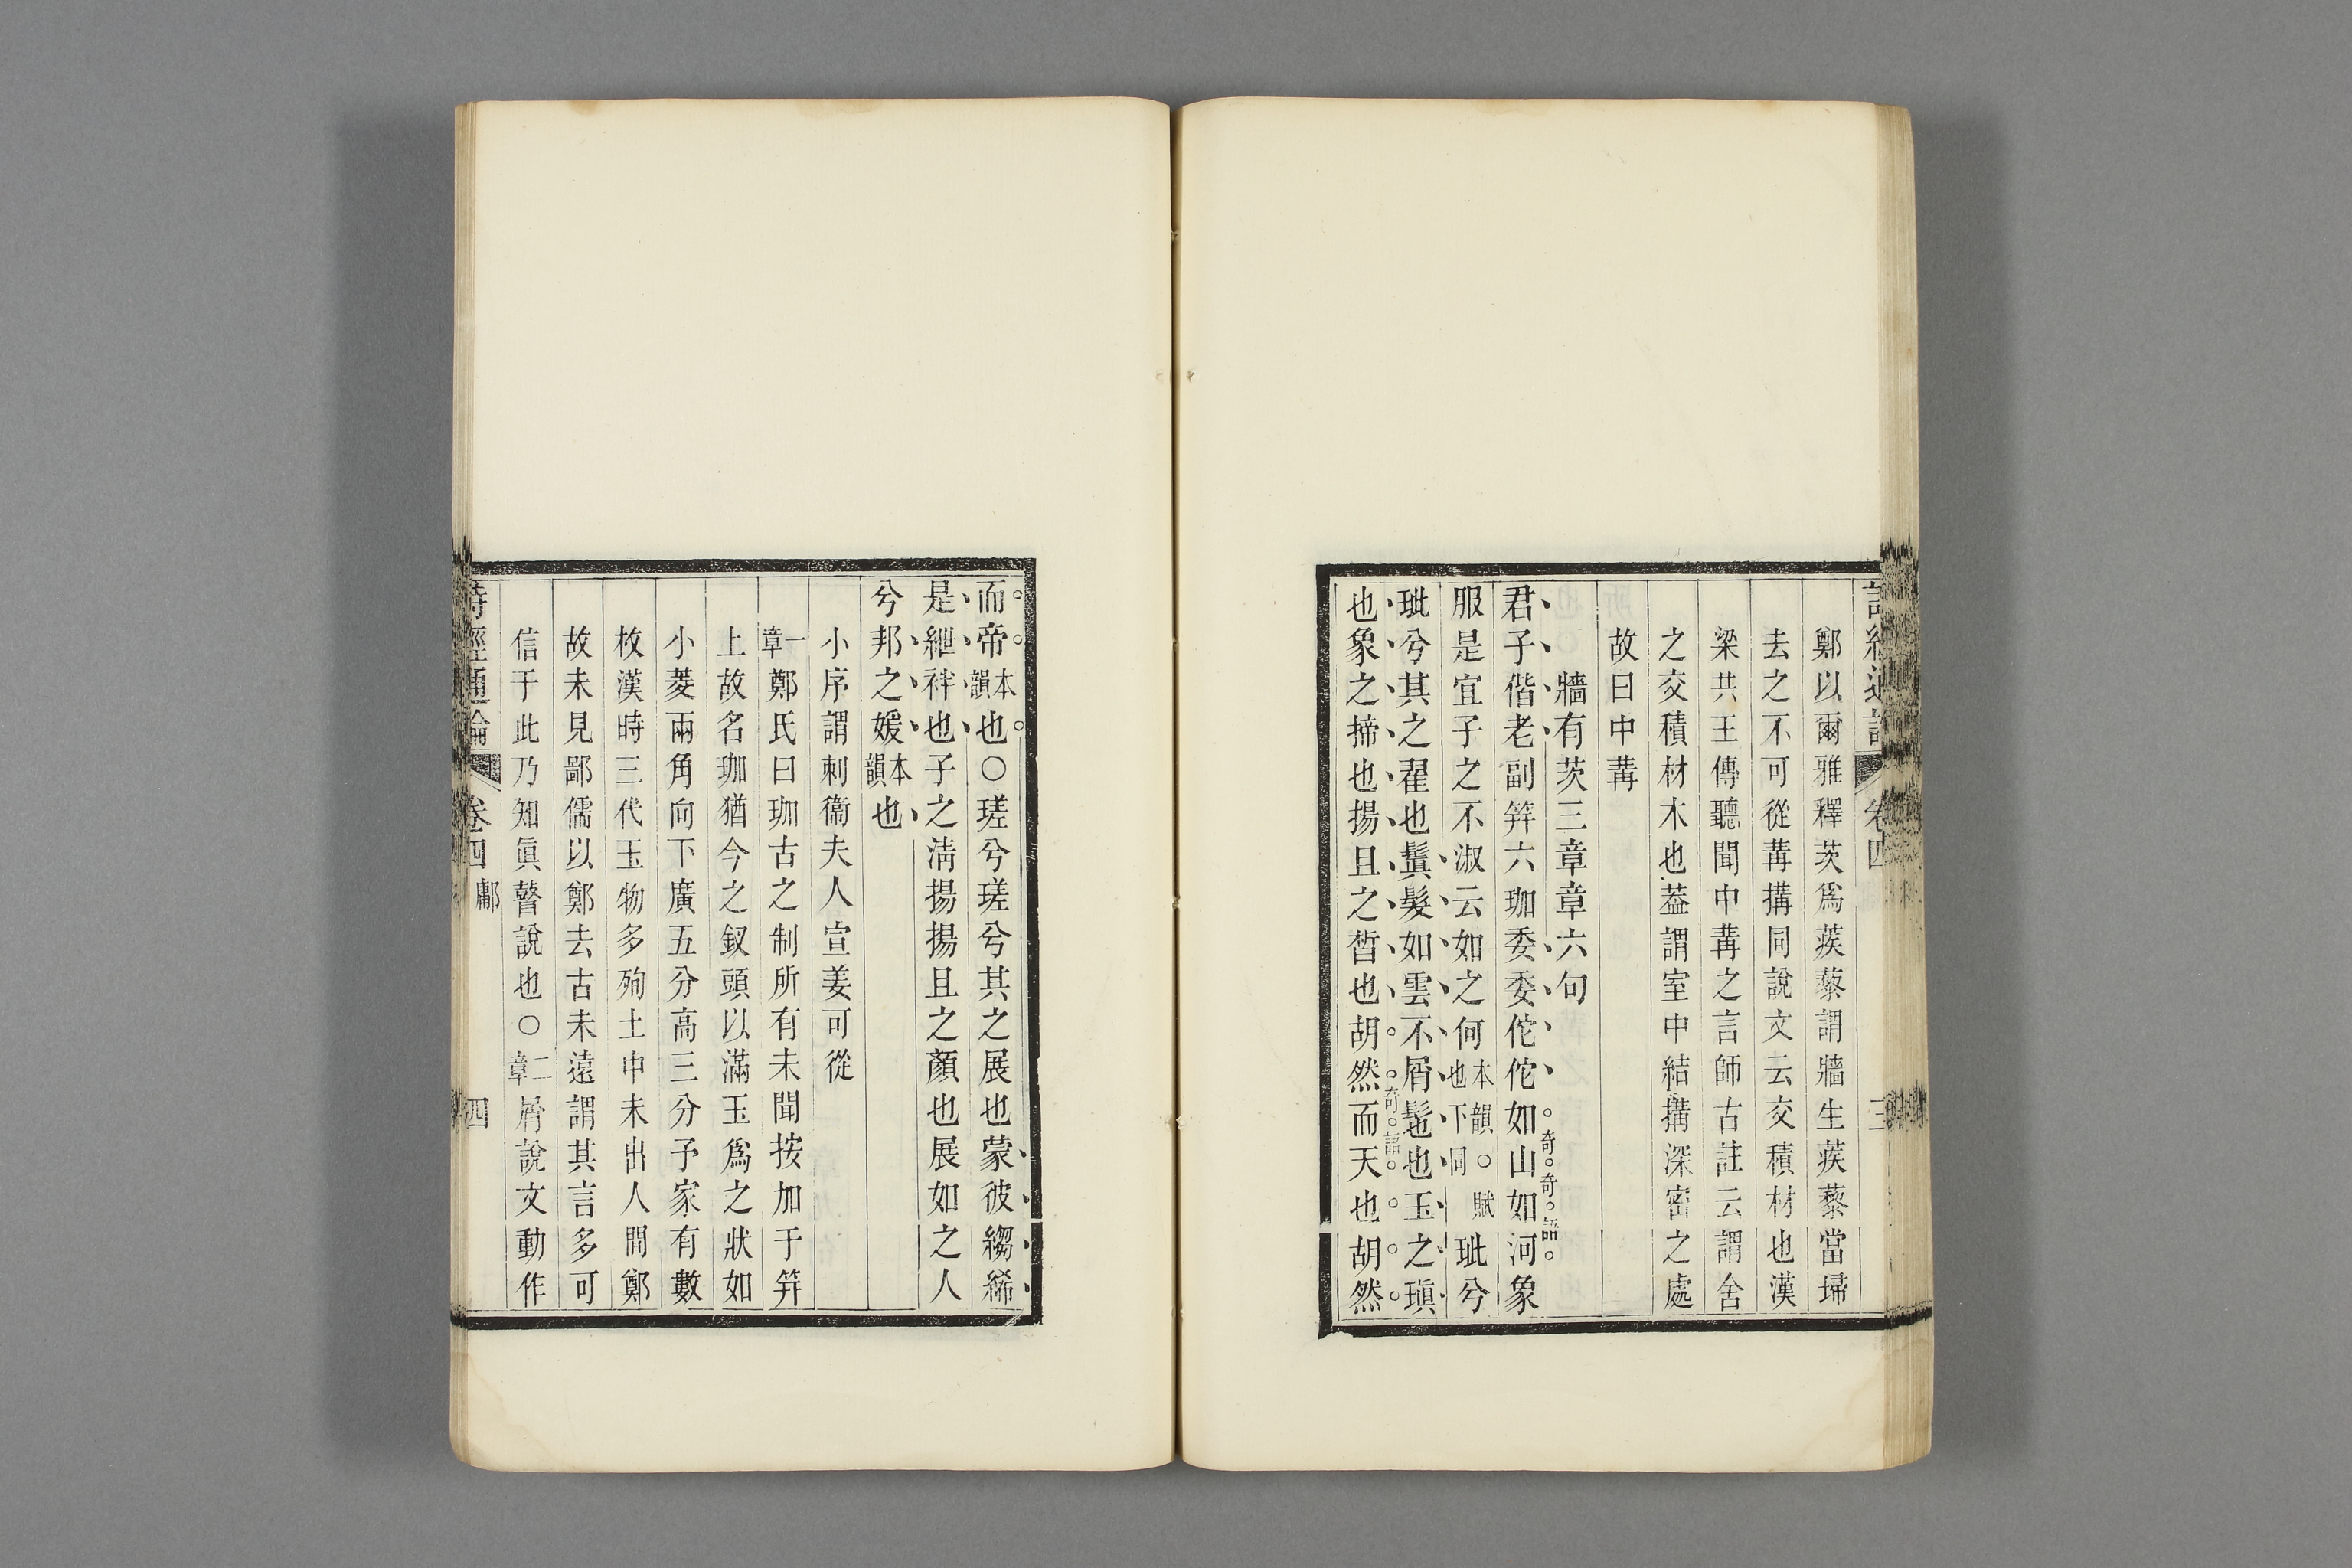 鄭以爾雅釋茨爲蒺藜謂牆生蒺藜當埽
去之不可從冓搆同說文云交積材也漢
梁共王傳聽聞中冓之言師古註云謂舍
之交積材木也葢謂室中結搆深密之處
故曰中冓
牆有茨三章章六句
君子偕老副筓六珈委委佗佗如山如河象
奇奇語
服是宜子之不淑云如之何本韻也下同○賦玼兮
玼兮其之翟也鬒髮如雲不屑髢也玉之瑱
奇語
也象之揥也揚且之晳也胡然而天也胡然
而帝本韻也○瑳兮瑳兮其之展也蒙彼縐絺
是紲袢也子之淸揚揚且之顏也展如之人
兮邦之媛本韻也
小序謂刺衞夫人宣姜可從
一章鄭氏曰珈古之制所有未聞按加于筓
上故名珈猶今之釵頭以滿玉爲之狀如
小菱兩角向下廣五分高三分予家有數
枚漢時三代玉物多殉土中未出人間鄭
故未見鄙儒以鄭去古未遠謂其言多可
信于此乃知眞瞽說也○二章屑說文動作
詩經通論 卷四 鄘 四